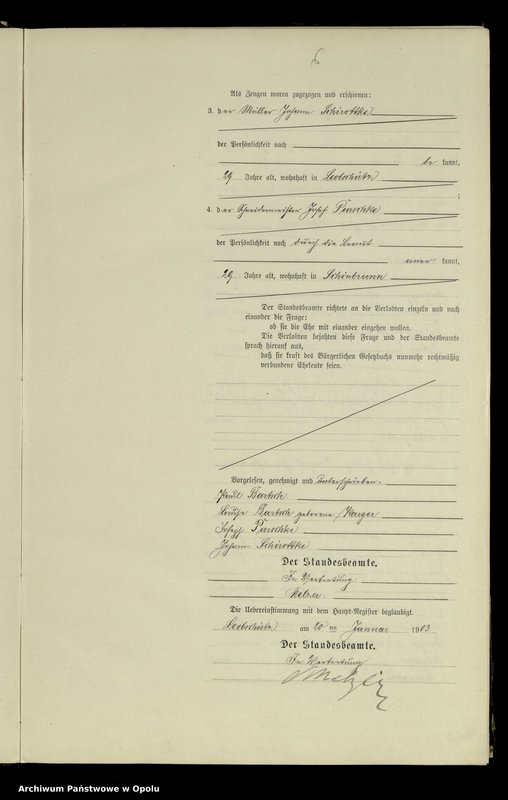 6
Als Zeugen waren zugezogen und erschienen:
3. der Müller Johann Schirottke
der Persönlichkeit nach
bekannt,
29 Jahre alt, wohnhaft in Leobschütz
;
4. der Schneidermeister Josef Pierschke
der Persönlichkeit nach durch die Braut
anerkannt,
29 Jahre alt, wohnhaft in Schönbrunn
Der Standesbeamte richtete an die Verlobten einzeln und nach
einander die Frage:
ob sie die Ehe mit einander eingehen wollen.
Die Verlobten bejahten diese Frage und der Standesbeamte
sprach hierauf aus,
daß sie kraft des Bürgerlichen Gesetzbuchs nunmehr rechtmäßig
verbundene Eheleute seien.
Vorgelesen, genehmigt und unterschrieben.
Paul Bartsch
Bartsch geborene Harger
Joseph Pierschke
Johann Schirottke
Der Standesbeamte.
In Vertretung
Die Uebereinstimmung mit dem Haupt-Register beglaubigt.
Leobschütz am 20 ten Januar 1903
Der Standesbeamte.
In Vertretung
Archiwum Państwowe w Opolu